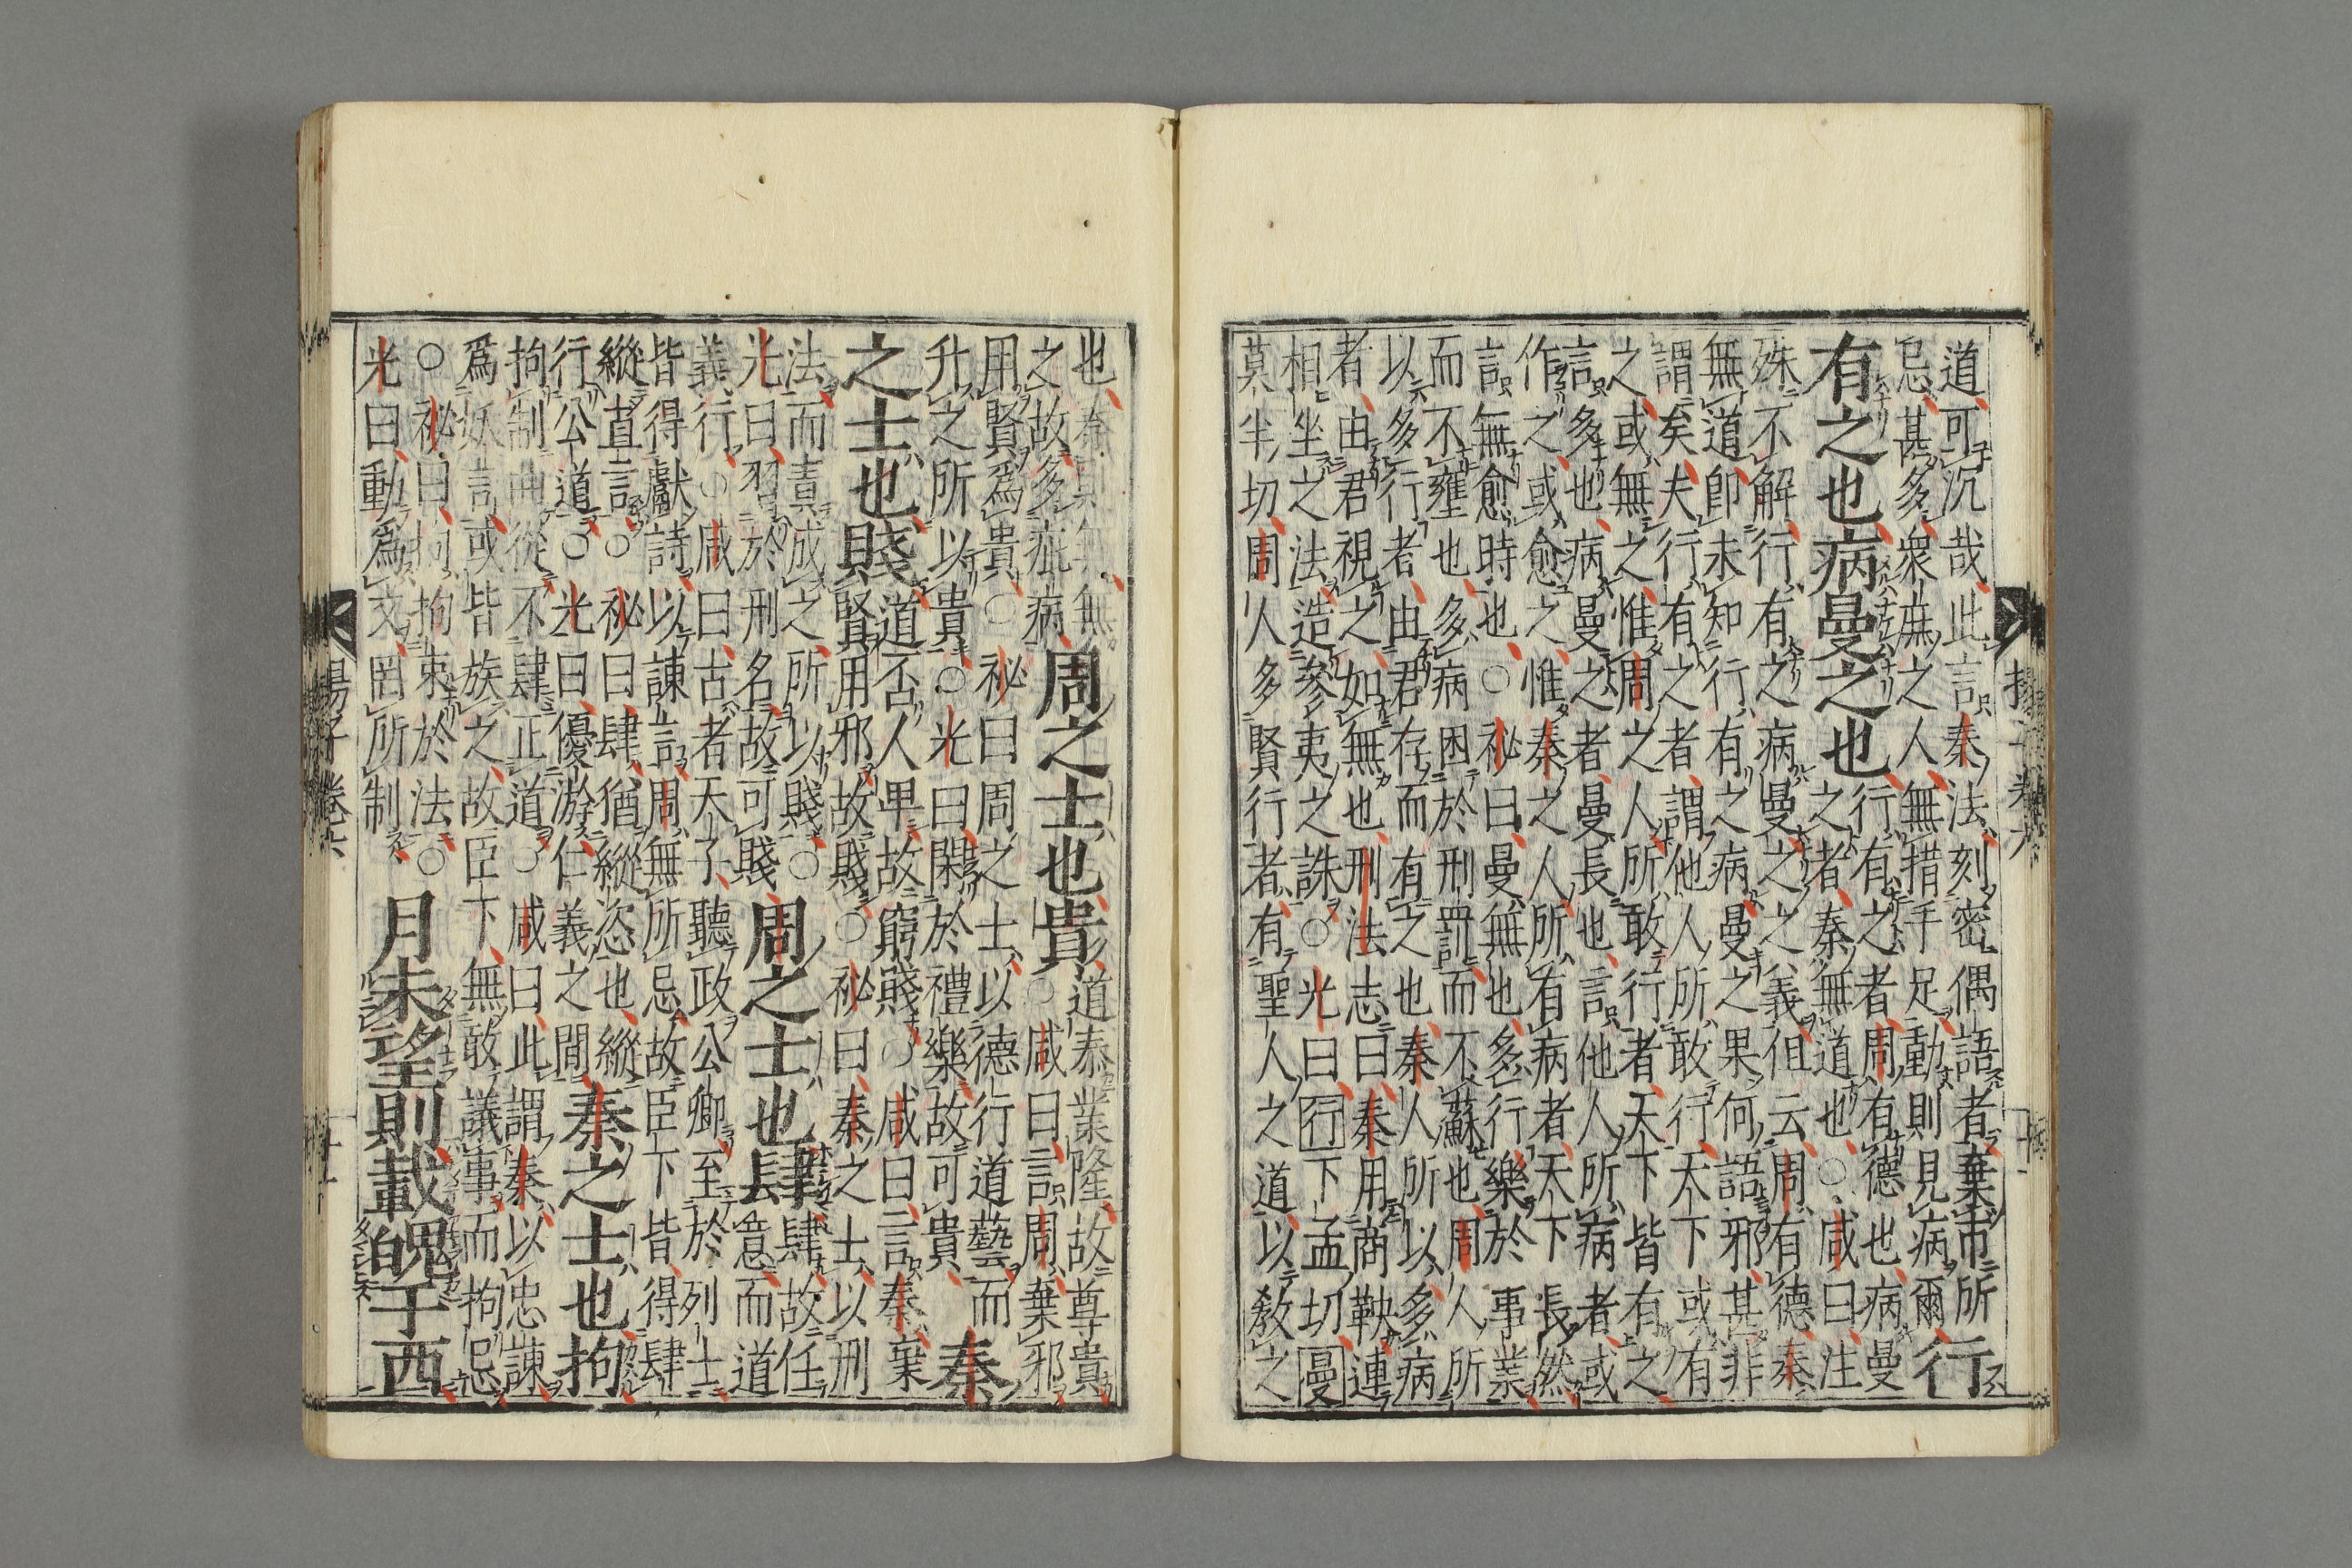 道可沉哉此言秦法刻密偶語者棄市所
忌甚多衆庶之人無措手足動則見病爾
行
有之也病曼之也
行有之者周有德也病曼
之者秦無道也○咸曰注
殊不解行有之病曼之之義但云周有德秦
無道卽未知行有之病曼之果何語邪甚非
謂矣夫行有之者謂他人所敢行天下或有
之或無之惟周之人所敢行者天下皆有之
言多也病曼之者曼長也言他人所病者或
作之或愈之惟秦之人所有病者天下長然
言無愈時也○祕曰曼無也多行樂於事業
而不壅也多病困於刑罰而不蘇也周人所
以多行者由君存而有之也秦人所以多病
者由君視之如無也刑法志曰秦用商鞅連
相坐之法造參夷之誅○光曰行下孟切曼
莫半切周人多賢行者有聖人之道以敎之
也秦則無
之故多疵病
周之士也貴
道泰業隆故尊貴
○咸曰言周棄邪
用賢爲貴○祕曰周之士以德行道藝而
升之所以貴○光曰閑於禮樂故可貴
秦
之士也賤
道否人卑故窮賤○咸曰言秦棄
賢用邪故賤○祕曰秦之士以刑
法而責成之所以賤○
光曰習於刑名故可賤
周之士也肆
肆故任
意而道
義行○咸曰古者天子聽政公卿至於列士
皆得獻詩以諫言周無所忌故臣下皆得肆
縱直言○祕曰肆猶縱恣也縱
行公道○光曰優游仁義之間
秦之士也拘
拘制曲從不肆正道○咸曰此謂秦以忠諫
爲妖言或皆族之故臣下無敢議事而拘忌
○祕曰拘拘束於法○
光曰動爲文罔所制
月未望則載魄于西
揚子卷六